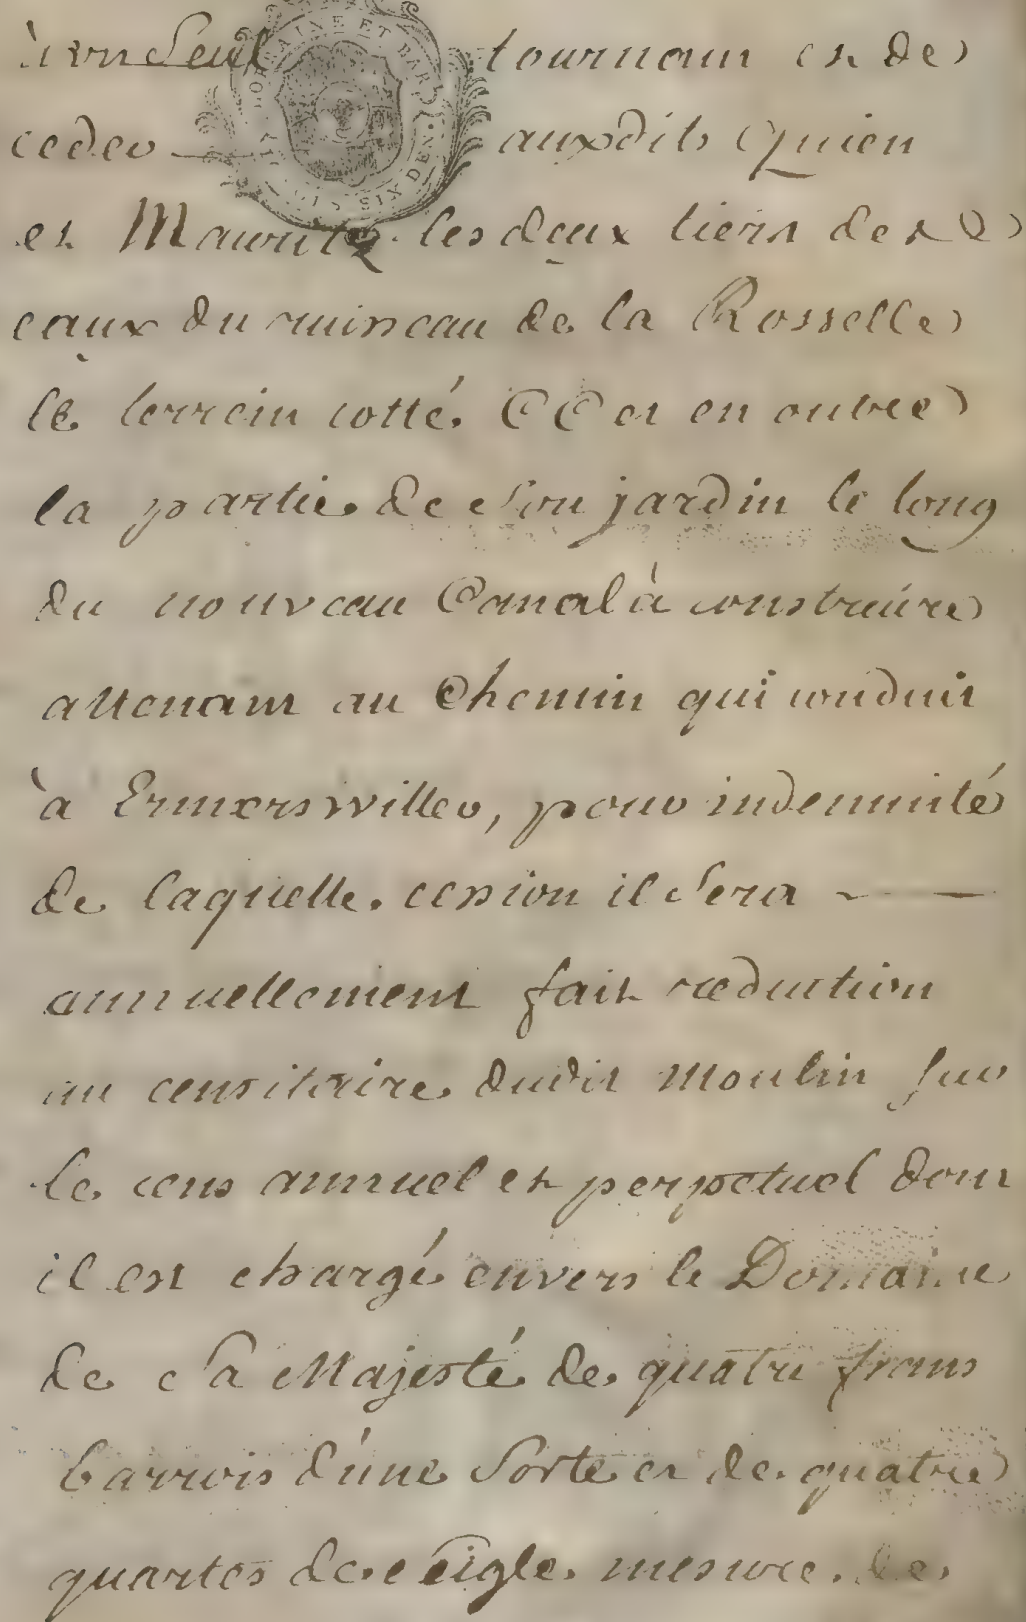 à un Seul tournant et de
ceder auxdits Quien
et Mauritz les deux tiers des
eaux du ruisseau de la Rosselle
le terrein cotté CC et en outre
la partie de Son jardin le long
du nouveau Canal à construire
attenant au Chemin qui conduit
à Ermerswiller, pour indemnité
de laquelle cession il Sera
annuellement fait reduction
au censitaire dudit Moulin sur
le cens annuel et perpetuel dont
il est chargé envers le Domaine
de Sa Majesté de quatre frans
barrois d'une Sorte et de quatre
quartes de Seigle mesure de
LORRAINE ET BAR
SIX DEN.